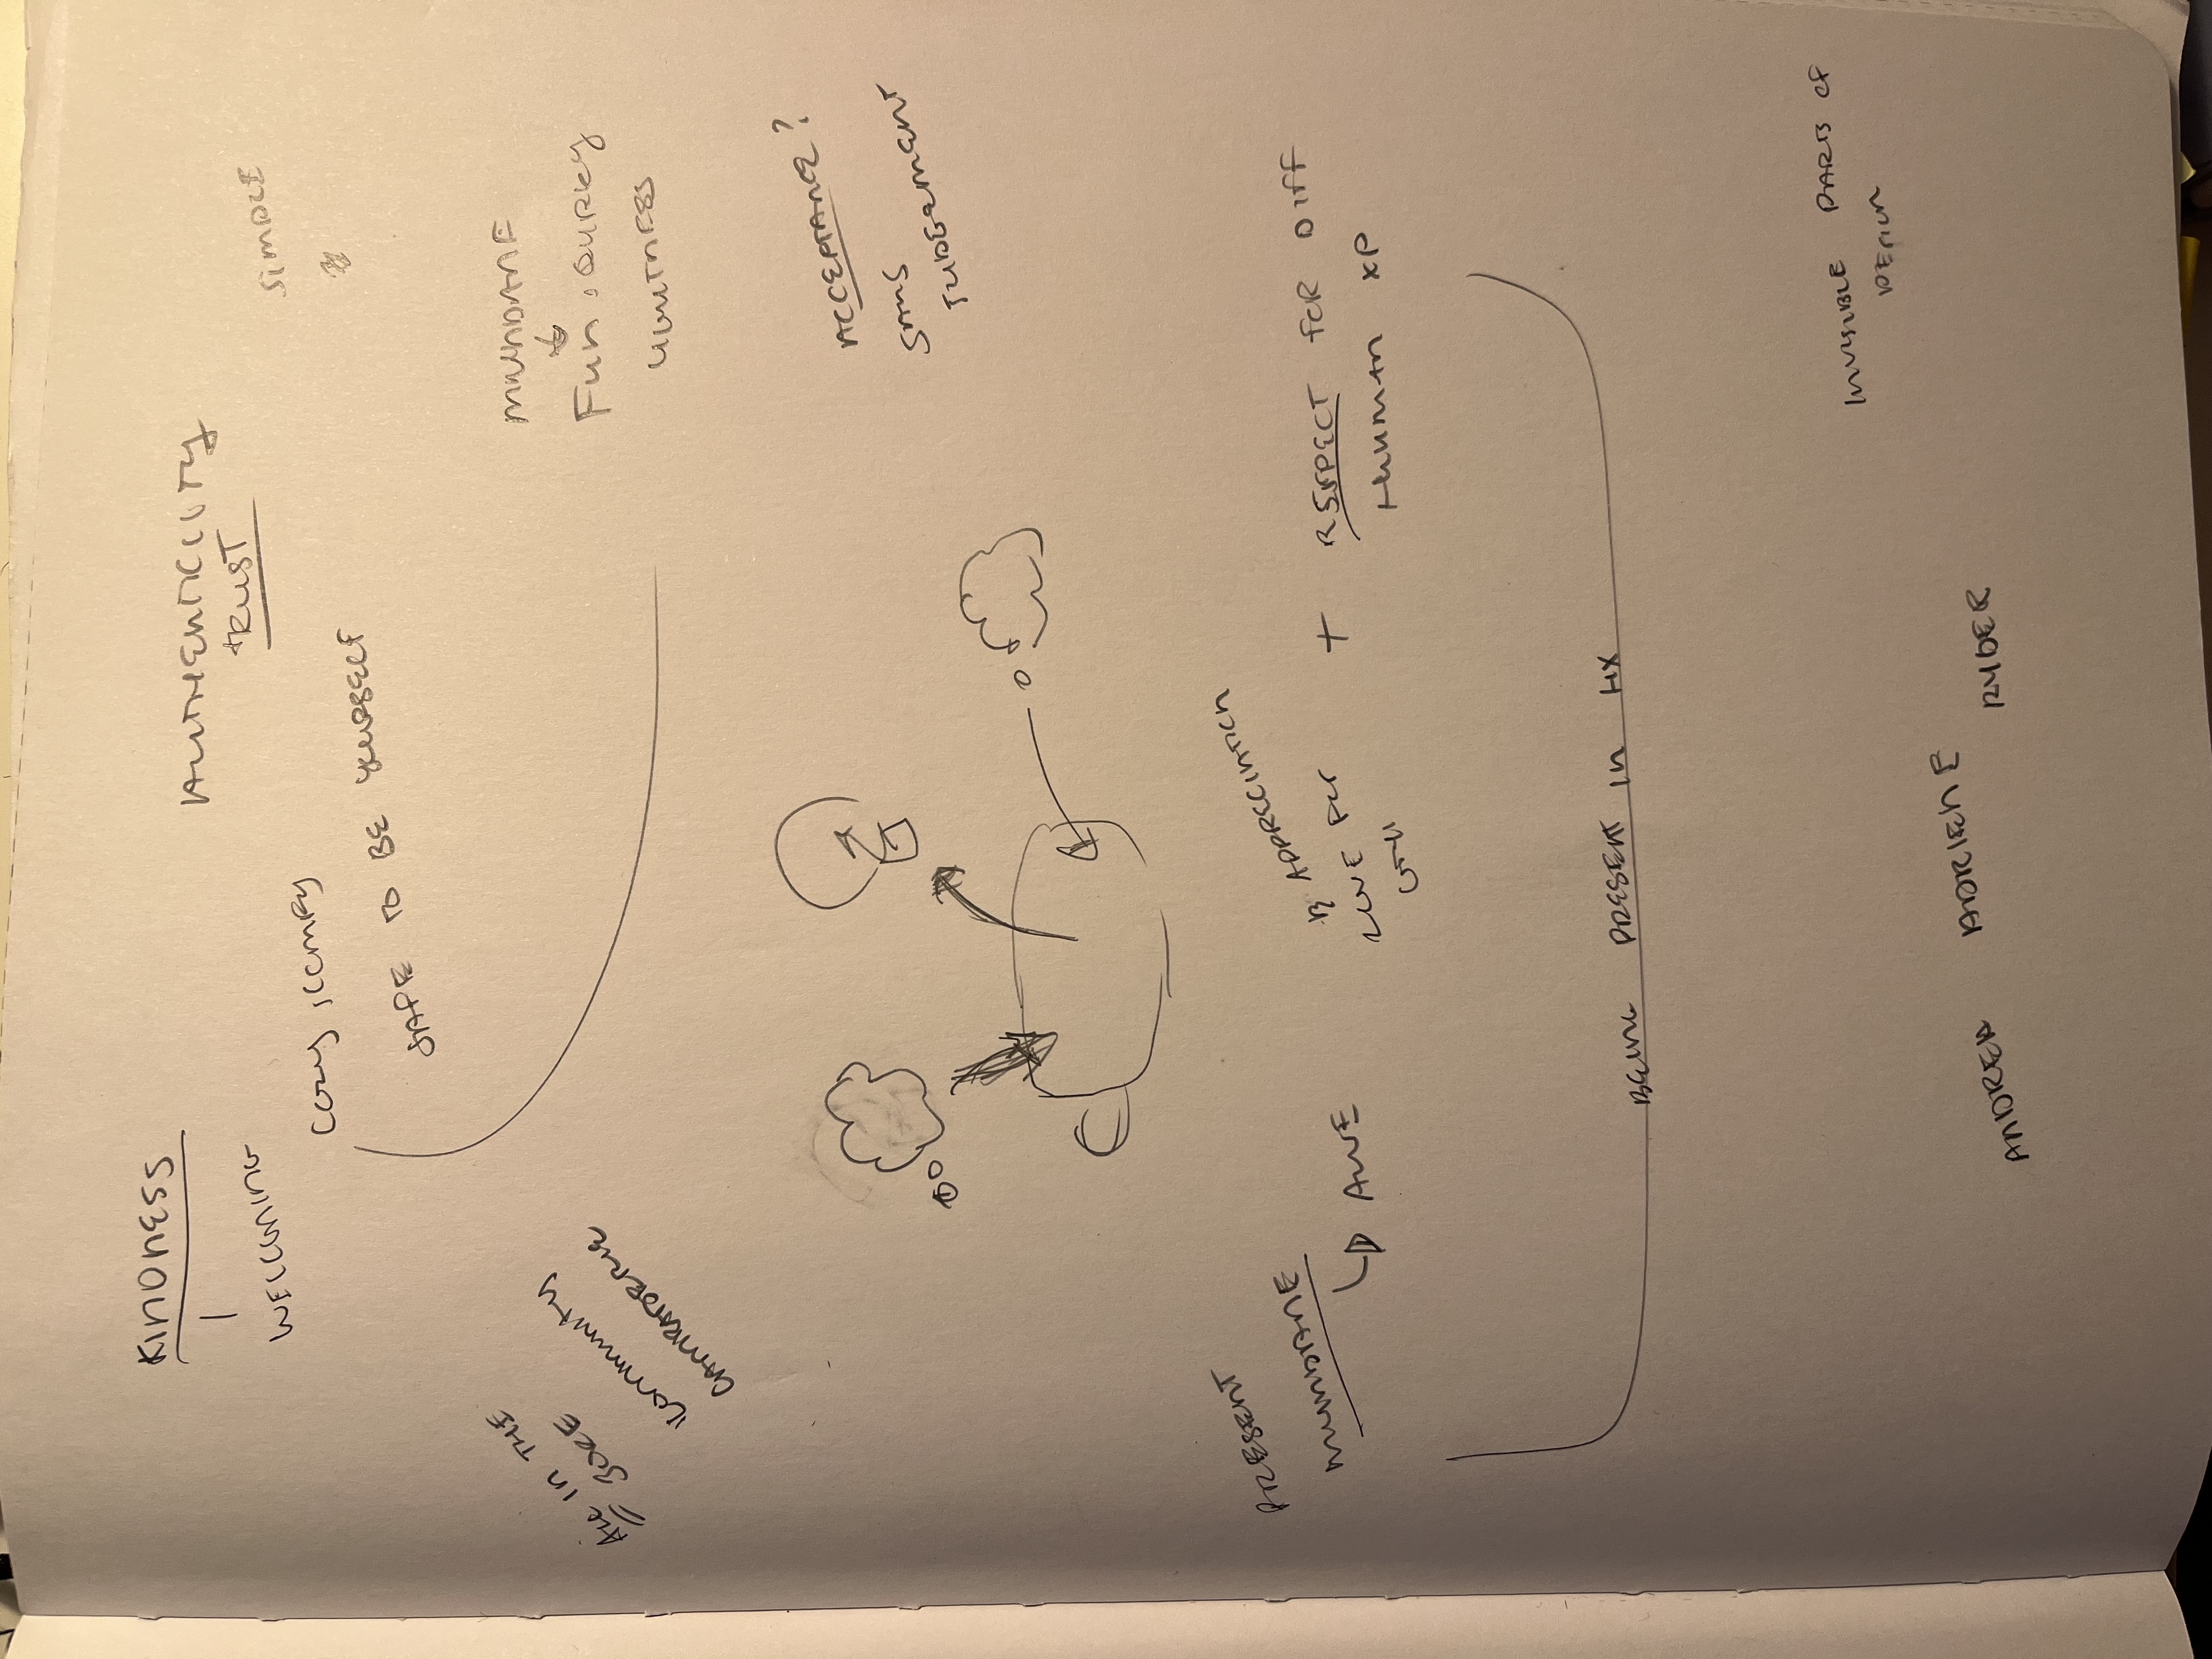 KINDNESS
WELCOMING
AUTHENTICITY
TRUST
SIMPLE
COZY, COMFY
SAFE TO BE YOURSELF
ALL IN THE
JOKE
COMMUNITY
CAMRADERIE
MUNDANE
FUN, QUIRKY
ACCEPTANCE?
SANS
JUDGEMENT
PRESENT
MUNDANE
APPRECIATION
LOVE FOR
+ RESPECT FOR DIFF
HUMAN XP
BEING PRESENT IN HX
INVISIBLE PARTS OF
DESIGN
ANDREA ADRIENE
RYDER